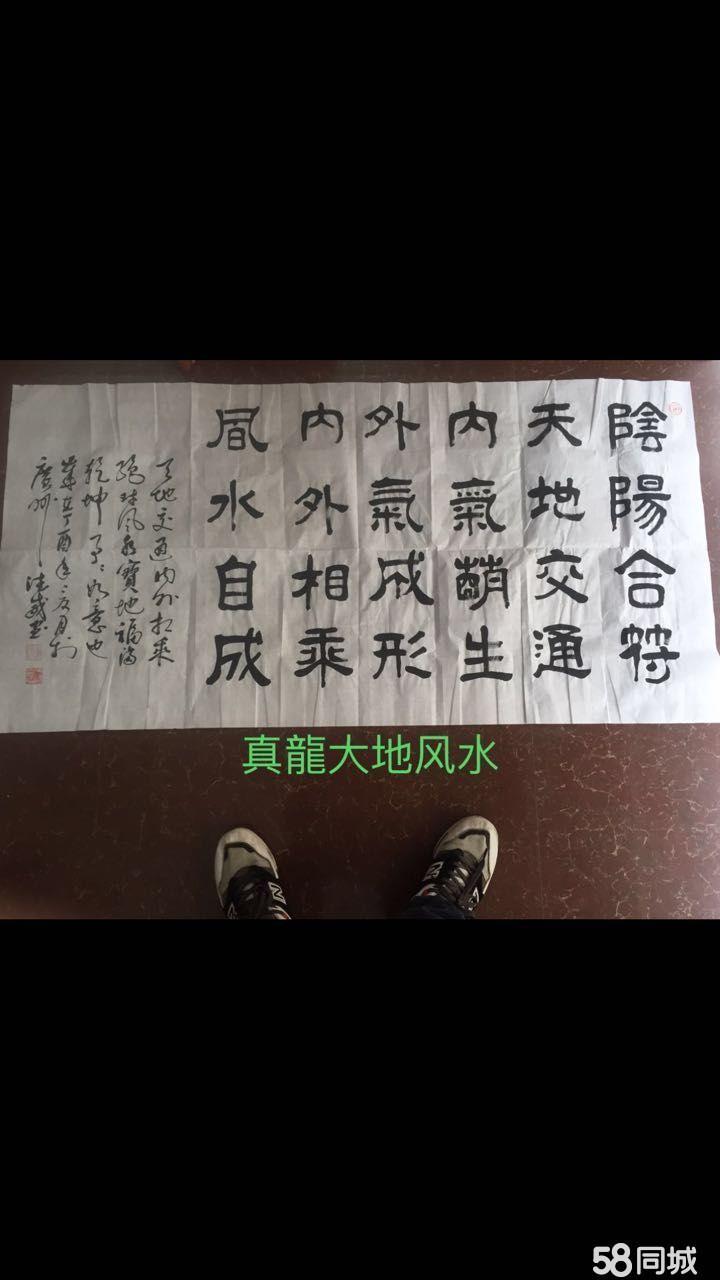 陰陽合符
天地交通
內氣萌生
外氣成形
內外相乘
風水自成
天地交通內外相乘
風水寶地福滿
乾坤事事如意也
歲在丁酉年二月於
廣州
真龍大地风水
58同城